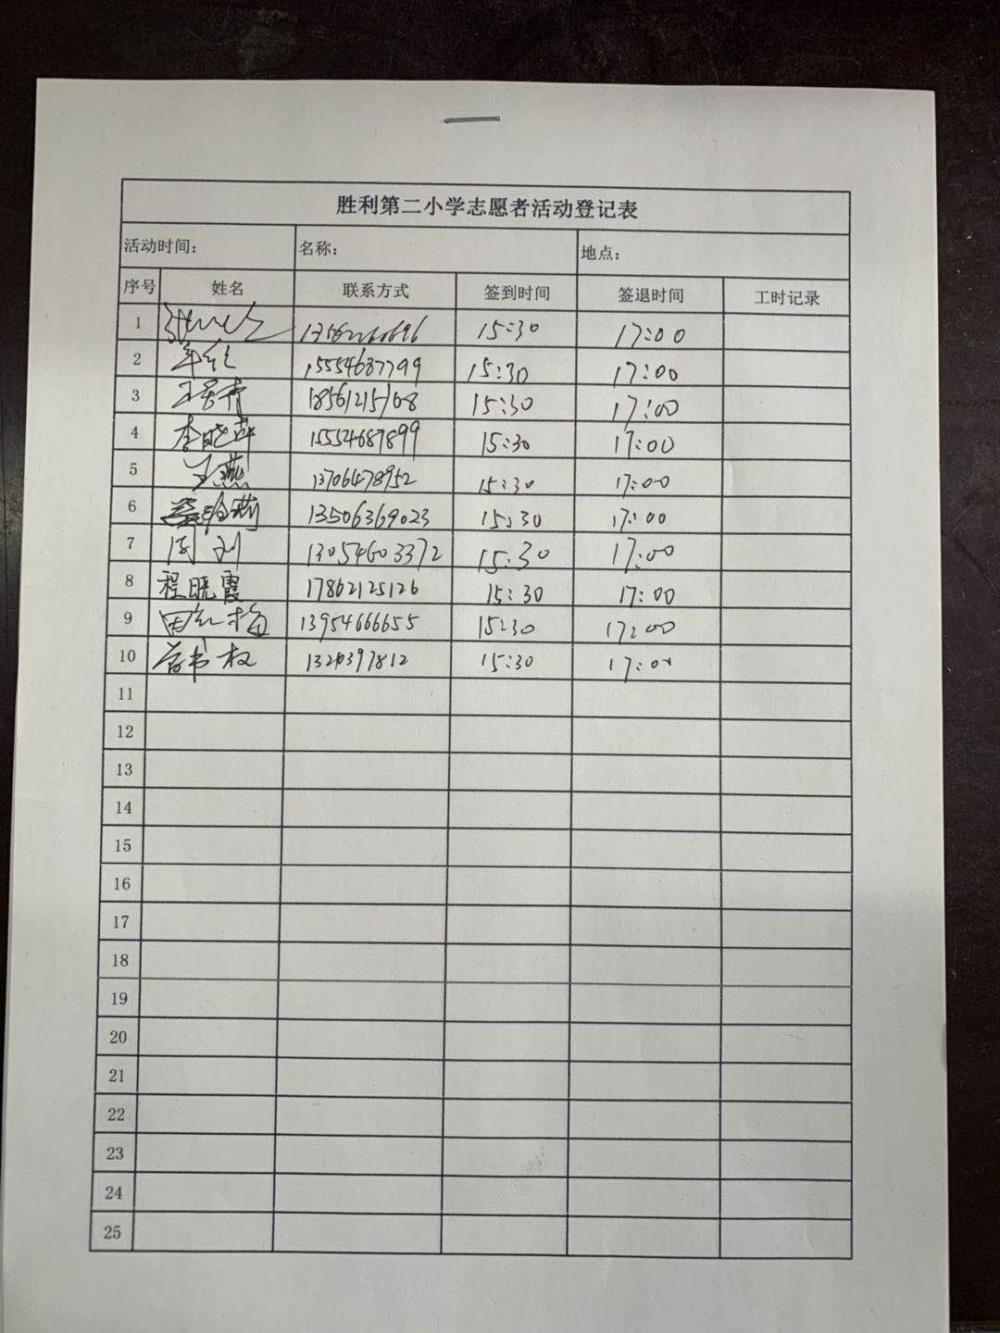 胜利第二小学志愿者活动登记表
活动时间: 名称: 地点:
序号 姓名 联系方式 签到时间 签退时间 工时记录
1 15:30 17:00
2 15554687799 15:30 17:00
3 18561215168 15:30 17:00
4 李晓萍 15554687899 15:30 17:00
5 王燕 13706478952 15:30 17:00
6 13506369023 15:30 17:00
7 周利 13054603372 15:30 17:00
8 程晓霞 17862125126 15:30 17:00
9 田红梅 13954666655 15:30 17:00
10 15:30 17:00
11
12
13
14
15
16
17
18
19
20
21
22
23
24
25